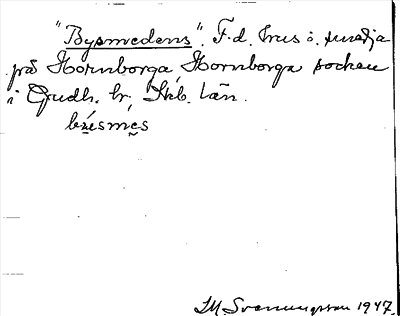 "Bysmedens". F.d. hus o. smedja
på Hornborga, Hornborga socken
i Gudh. hr, Skb. län.
býsmes
M. Svenungsson 1947.